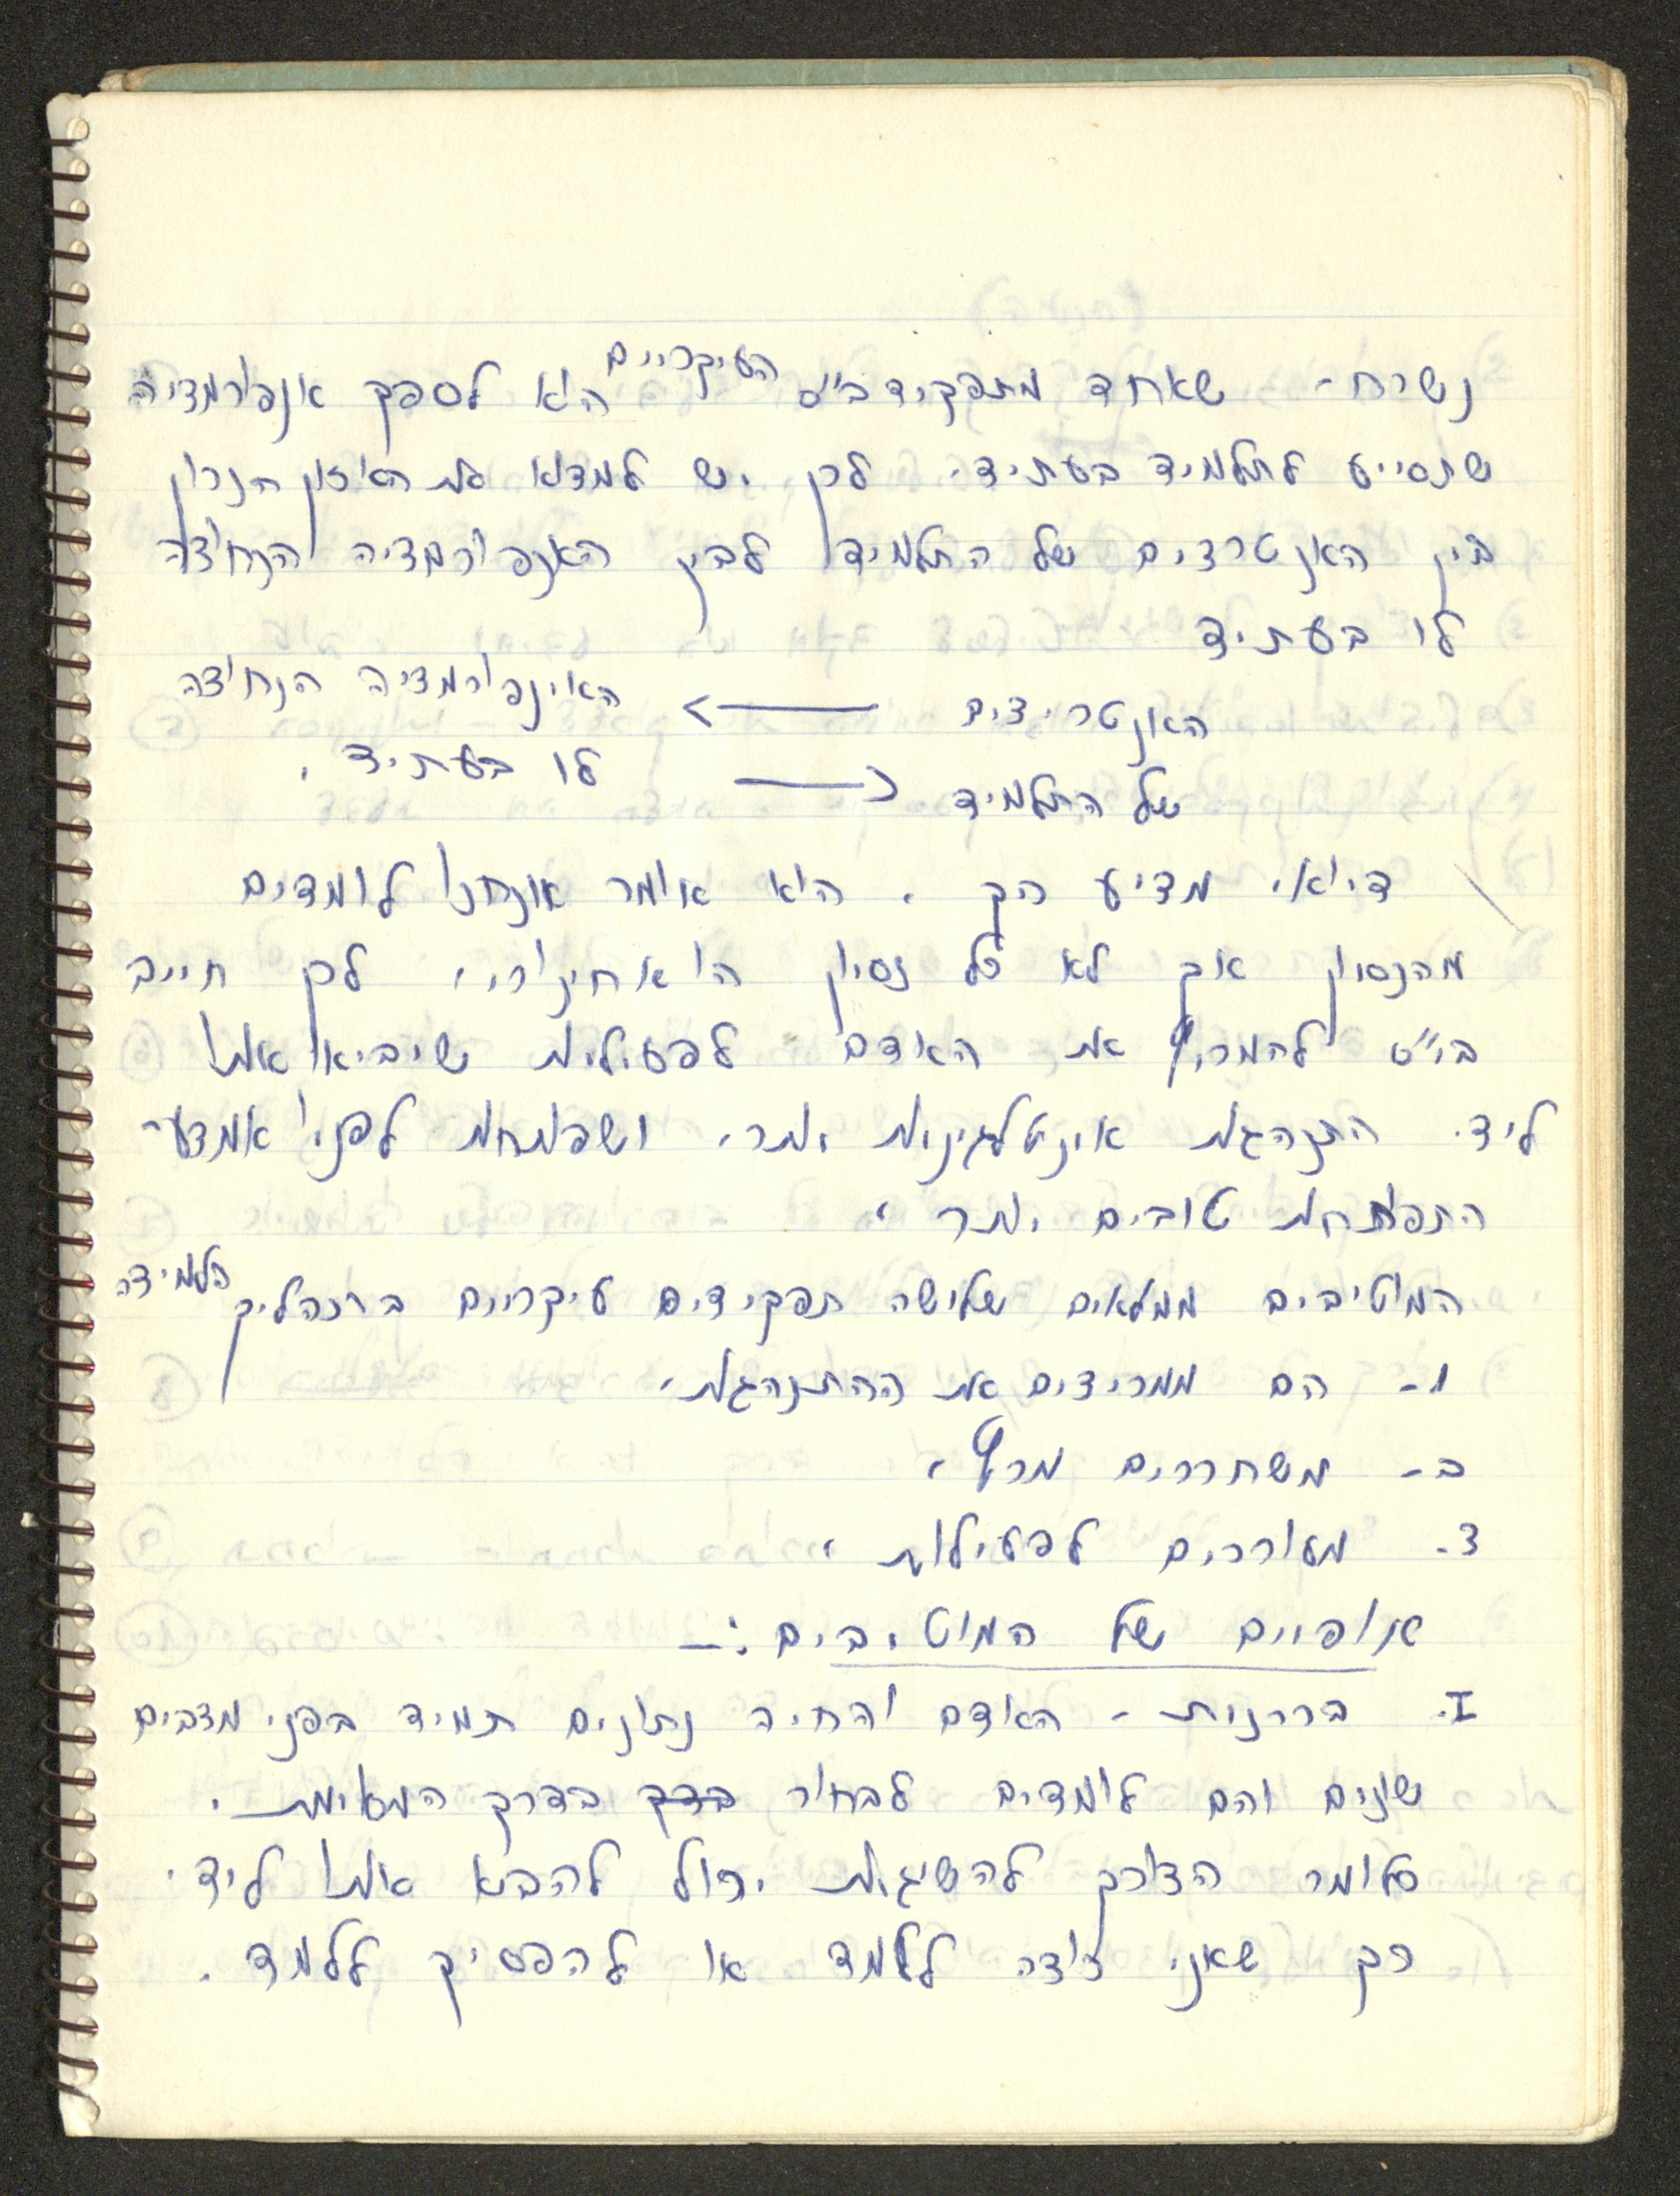 נשרח - שאחד מתפקיד בי"ס העיקריים הוא לספק אנפורמציה
שתסייע לתלמיד בעתיד. לכן יש למצוא את האיזון הנכון
בין האנטרצים של התלמיד לבין האנפורמציה הנחוצה
לו בעתיד
האנטריצים → האינפורמציה הנחוצה
של התלמיד ← לו בעתיד.
דיואי מציע הק . הוא אומר אנחנו לומדים
מהנסיון אך לא כל נסיון הוא חינוכי, לכן חייב
בי"ס להמריץ את האדם לפעילות שיביאו אותו
ליד. התנהגות אינטלגינית יותר. ושפותחת לפניו אמצעי
התפתחות טובים יותר.
המוטיבים ממלאים שלושה תפקידים עיקריים בתהליך הלמידה
1- הם ממריצים את ההתנהגות.
ב- משחררים מרץ.
3. מעוררים לפעילות.
אנופיים של המוטיבים :-
I. בררנות - האדם והחיה נתונים תמיד בפני מצבים
שונים והם לומדים לבחור בדק בדרך המתאימה.
כלומר הצורך להשיגות יכול להביא אותו ליד.
כך שאני רוצה ללמד או להפסיק ללמד.